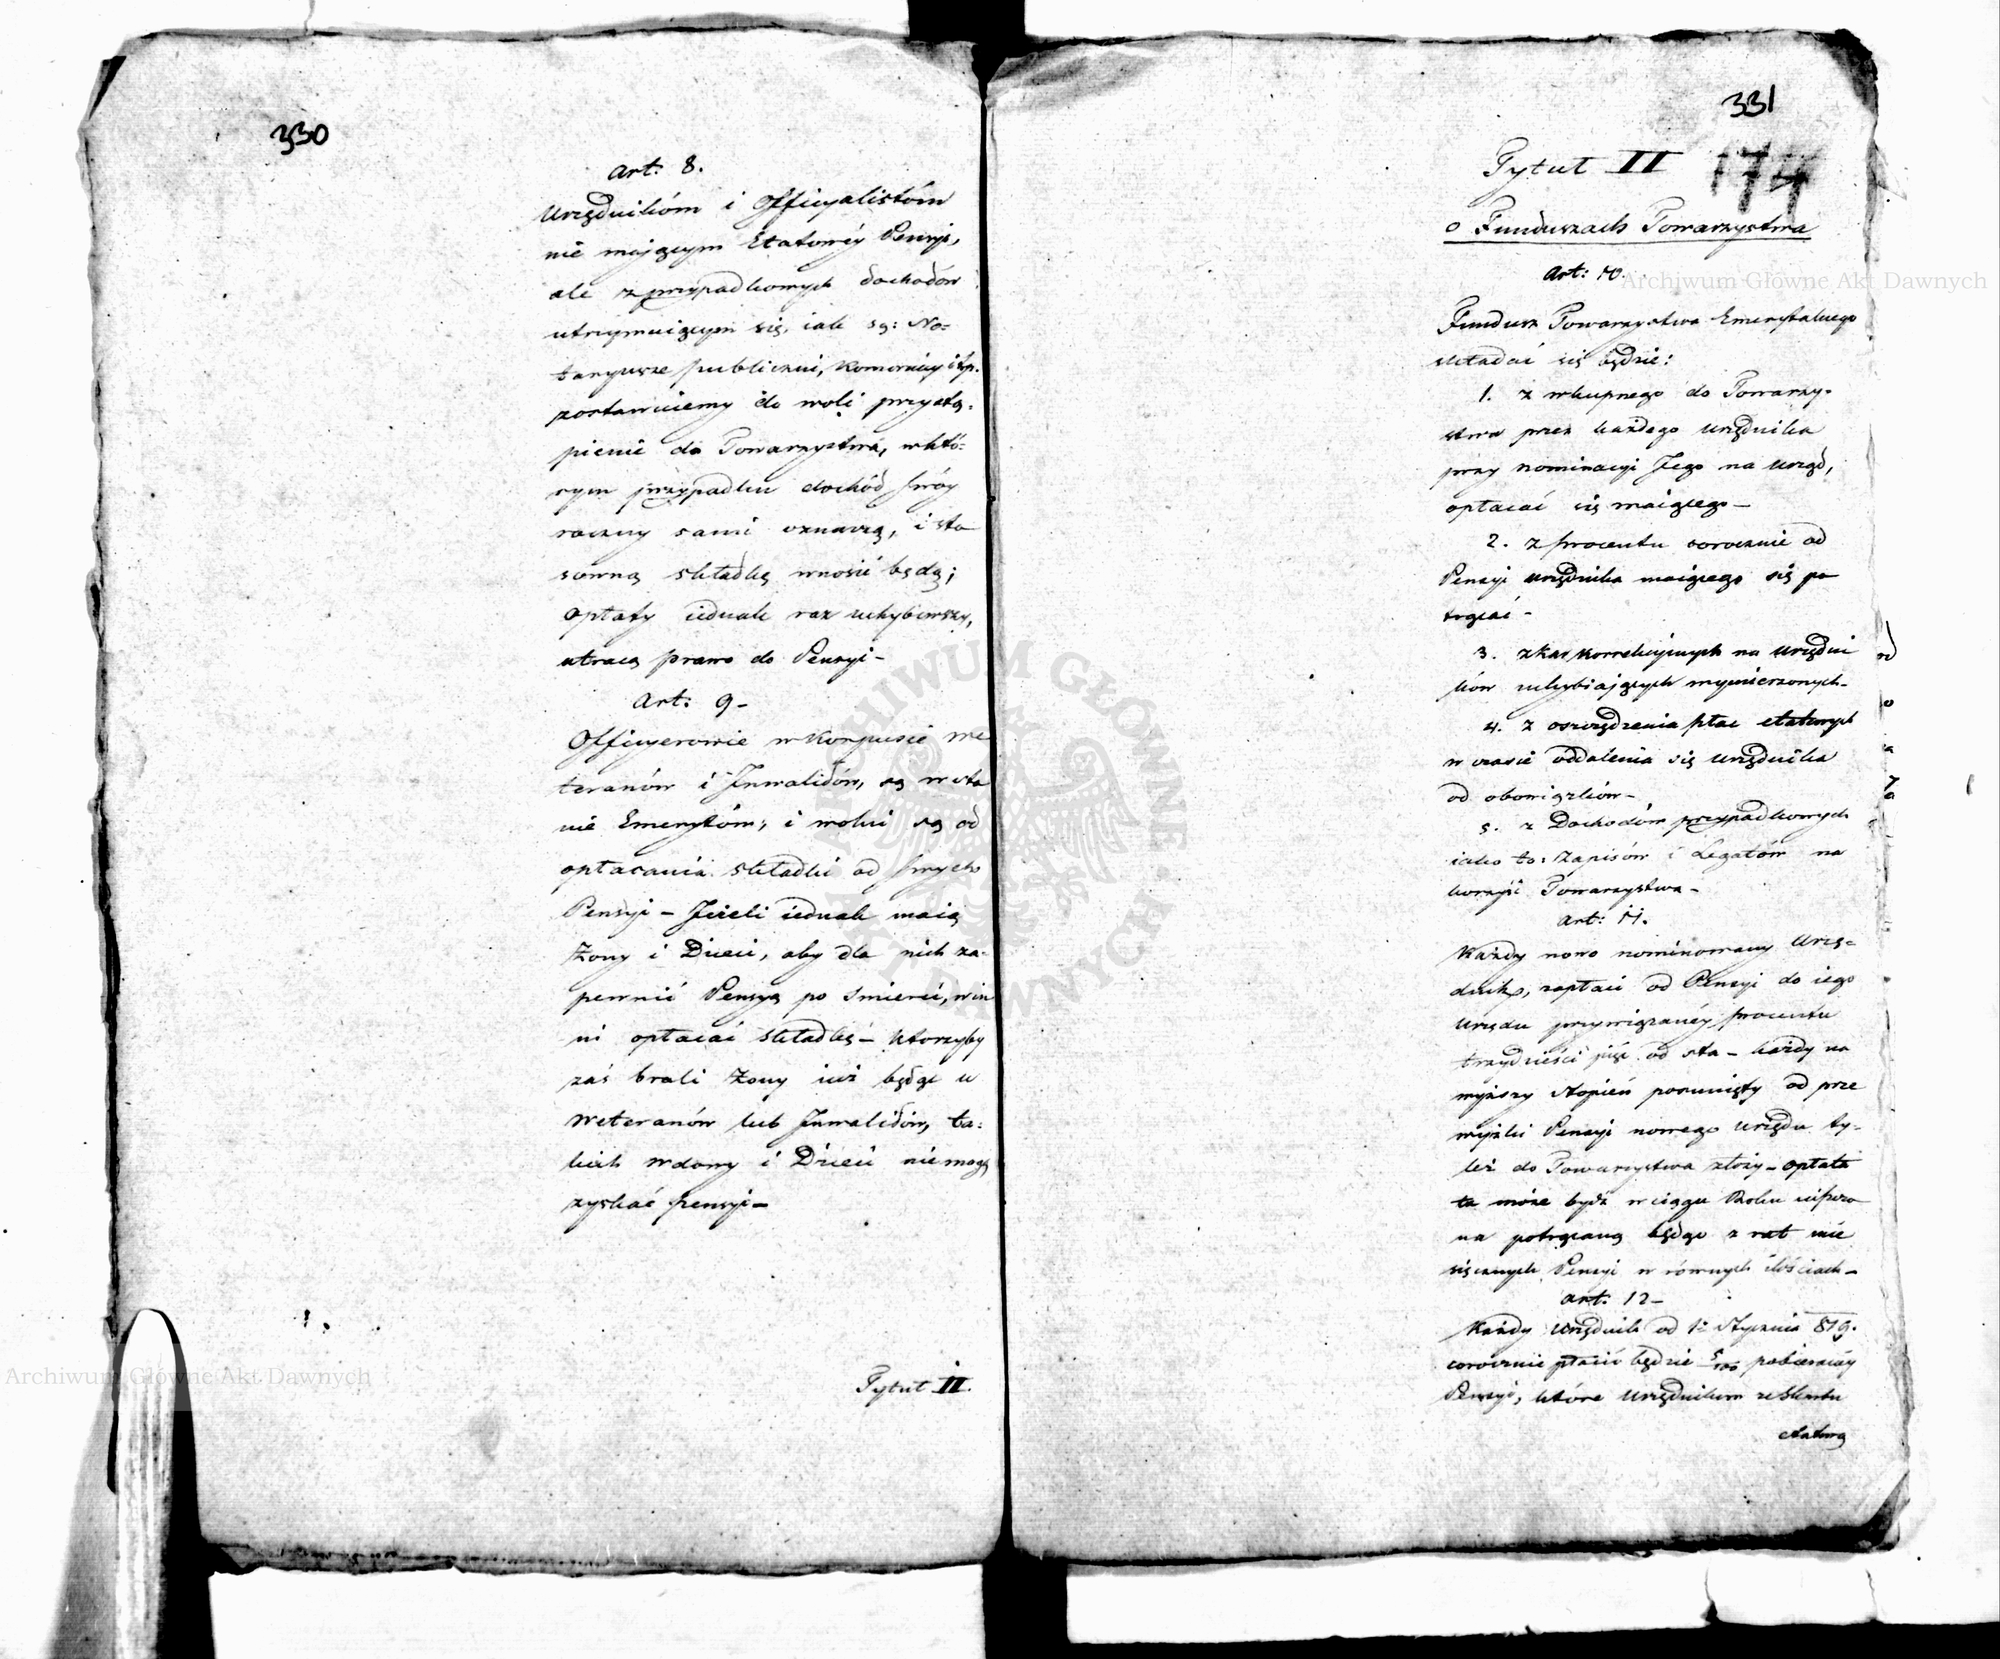 330
Art: 8.
Urzędników i Officyalistów
nie maiącym Etatowéy Pensyi,
ale z przypadkowych dochodów
utrzymuiącym się, iak są: No=
taryusze publiczni, Komornicy itp.
zostawuiemy do woli przystą=
pienie do Towarzystwa, w któ=
rym przypadku dochód swóy
roczny sami oznaczą, i sto
sowną składkę wnosić będą;
opłaty iednak raz uchybiwszy,
utracą prawo do Pensyi –
Art: 9 –
Officyerowie w Korpusie We
teranów i Inwalidów, są w sta
nie Emerytów, i wolni są od
opłacania składki od swych
Pensyi – Jeżeli iednak maią
Żony i Dzieci, aby dla nich za=
pewnić Pensyą po śmierci, win
ni opłacać składkę – którzyby
zaś brali Żony iuż będąc w
Weteranów lub Inwalidów, ta=
kich Wdowy i Dzieci nie mogą
zyskać pensyi –
Tytuł II.
331
Tytuł II 174
o Funduszach Towarzystwa
Art: 10.
Fundusz Towarzystwa Emerytalnego
składać się będzie:
1. z wkupnego do Towarzy=
stwa przez każdego urzędnika
przy nominacyi Jego na urząd,
opłacać się maiącego –
2. z procentu corocznie od
Pensyi urzędnika maiącego się po
trącać –
3. z kar korrekcyinych na Urzędni
ków uchybiaiących wymierzonych –
4. z oszczędzenia płac etatowych
w czasie oddalenia się urzędnika
od obowiązków –
5. z Dochodów przypadkowych
iako to: zapisów i Legatów na
korzyść Towarzystwa –
Art: 11.
Każdy nowo nominowany Urzę=
dnik, zapłaci od Pensyi do iego
urzędu przywiązanéy procentu
trzydzieści pięć od sta – każdy na
wyższy stopień posunięty od prze
wyżki Pensyi nowego urzędu ty=
leż do Towarzystwa złoży – opłata
ta może bydź w ciągu Roku uiszczo
na potrącaną będąc z rat mie
sięcznych Pensyi w równych ilościach –
Art: 12 –
Każdy Urzędnik od 1. Stycznia 819.
corocznie płacić będzie 5/100 pobieranéy
Pensyi, które Urzędnikom ze Skarbu